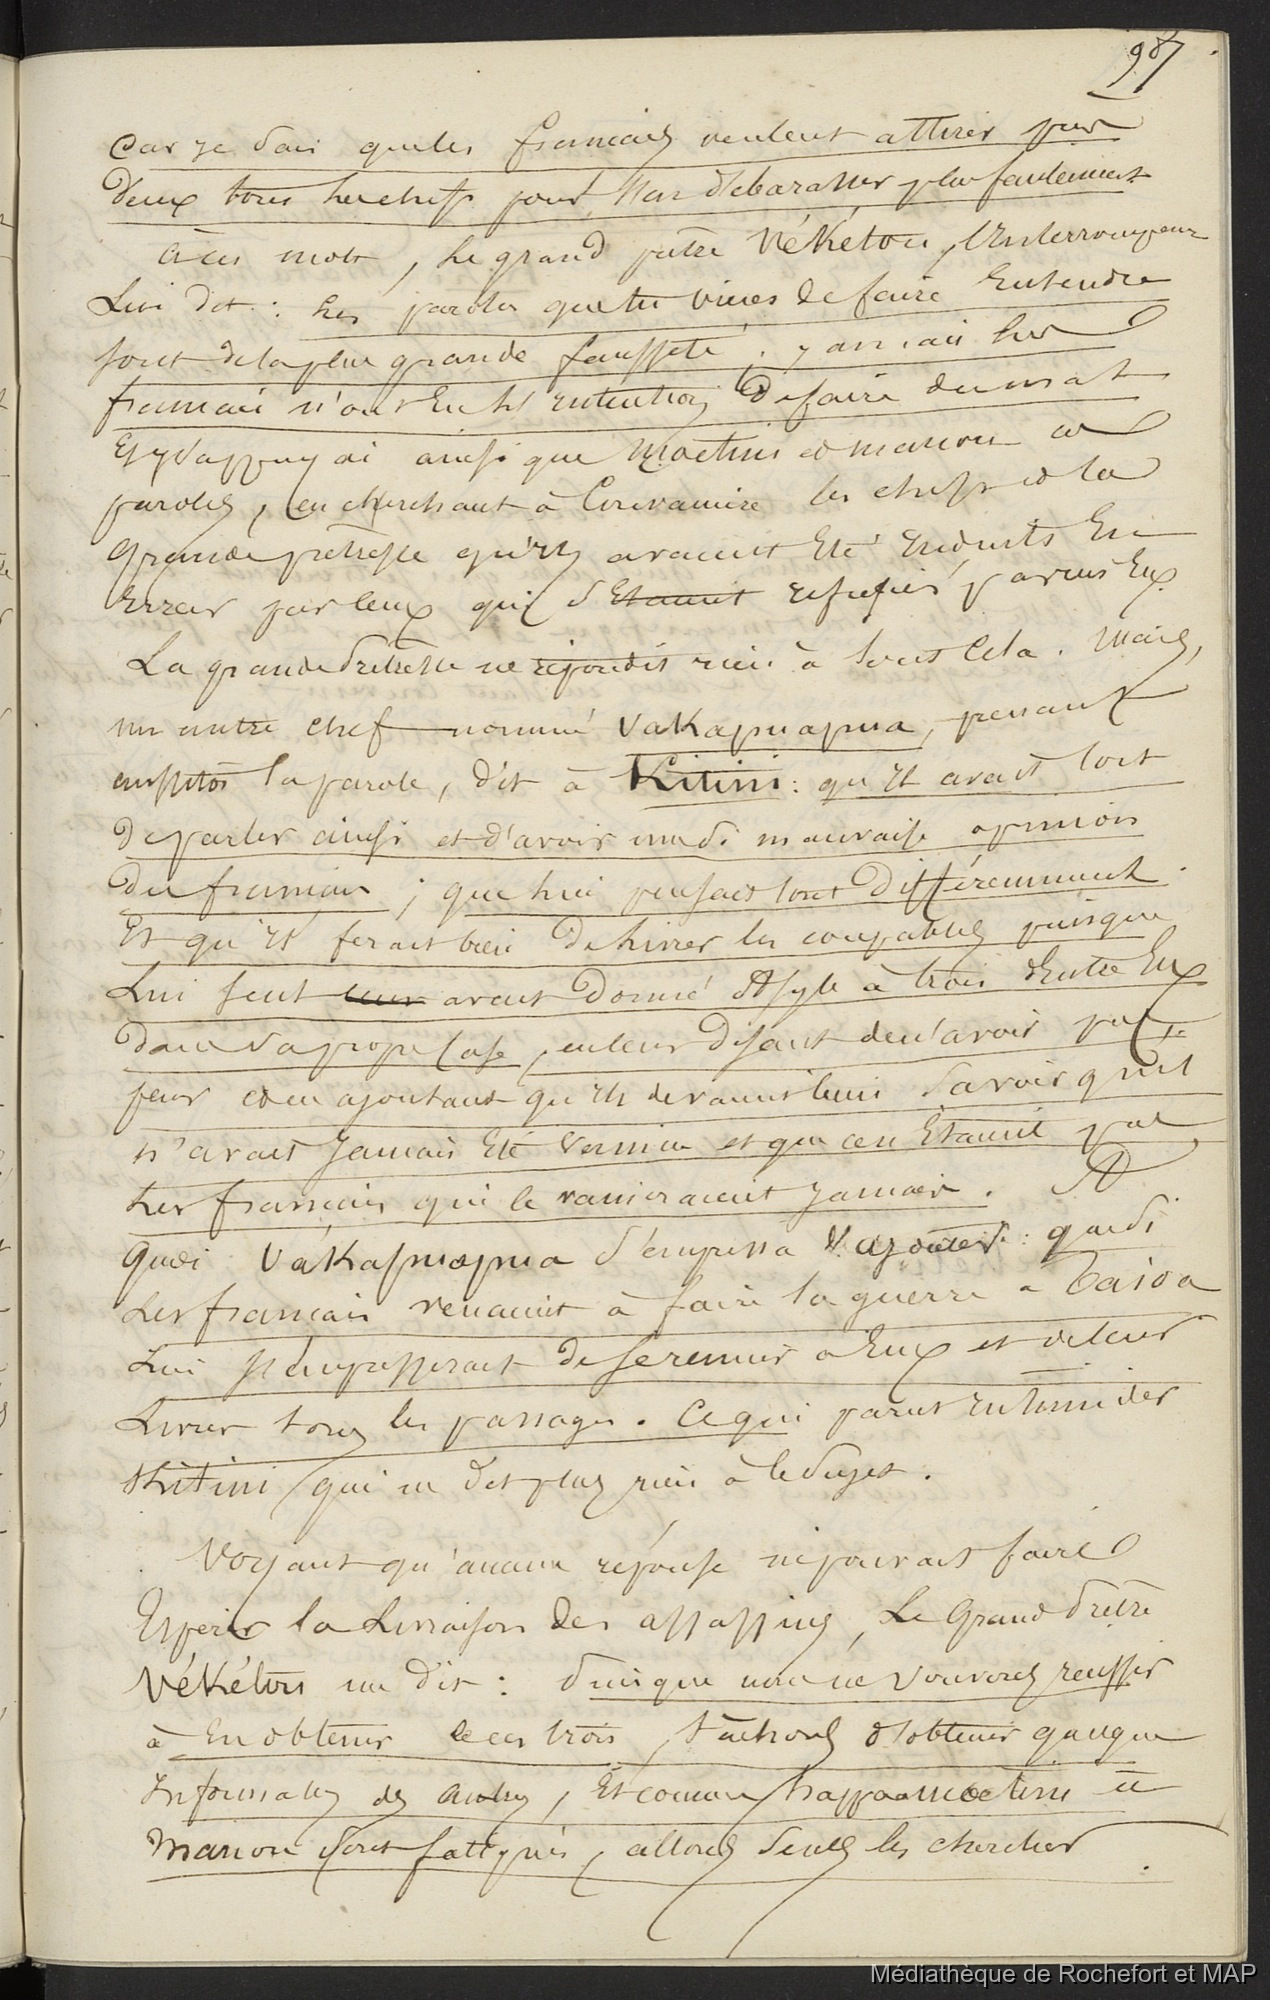 987
Car je sais que les français veulent attirer par
deux tous les chefs pour s'en débarasser plus facilement
à ces mots, le grand prêtre Vékétou, l'interrompant
Lui dit : les paroles que tu viens de faire entendre
sont de la plus grande fausseté. jamais les
français n'ont eu les intentions de faire du mal
Et j'appuyai ainsi que Moetini et Manou ces
paroles, en cherchant à convaincre les chefs et la
Grande prêtresse qu'ils avaient été enduits en
erreur par ceux qui s'étaient refugiés parmis Eux.
La grande Prêtresse ne répondit rien à tout cela. Mais,
un autre chef nommé Vakapuapua, prenant
aussitôt la parole, dit à Kitini : qu'il avait tort
de parler ainsi et d'avoir une si mauvaise opinion
des français ; que lui pensait tout différemment.
Et qu'il ferait bien de livrer les coupables puisque
Lui seul avait donné Asyle à trois d'entre Eux
dans sa propre Case, en leur disant de n'avoir pas
peur et en ajoutant qu'ils devaient bien savoir qu'il
n'avait jamais été vaincu et que ce n'étaient pas
les français qui le vaincraient jamais. A
Quoi Vakapuapua s'empressa d'ajouter : que si
Les français venaient à faire la guerre a Taioa
Lui s'empresserait de se reunir à Eux et de leur
Livrer tous les passages. Ce qui parut intimider
Kitini qui ne dit plus rien à ce sujet.
Voyant qu'aucune réponse ne pouvait faire
Espérer la Livraison des assassins, Le Grand Prêtre
Vékétou me dit : Puisque nous ne pouvons reussir
à En obtenir de ces trois, tâchons d'obtenir quelque
Informations des autres, Et comme Moetini et
Manou sont fatigués, allons seuls les chercher
Médiathèque de Rochefort et MAP